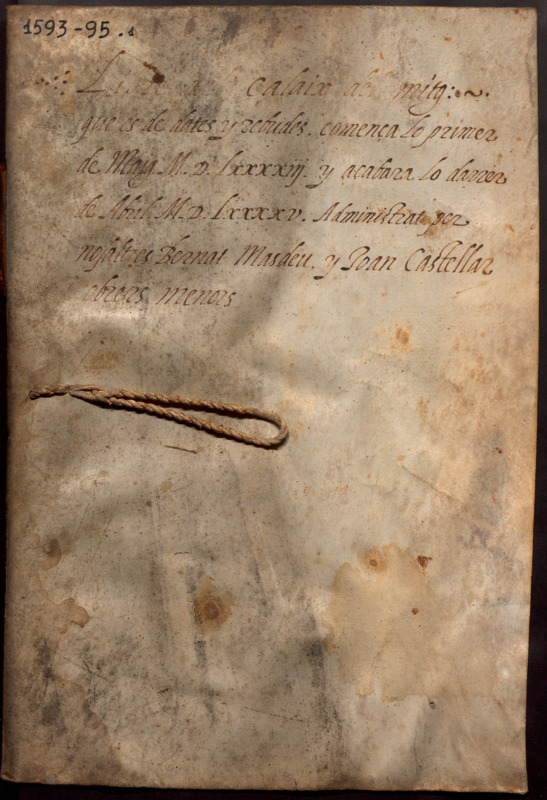 1593-95.1
calaix del mitg:
que es de dates y rebudes. comença lo primer
de Maig M. D. Lxxxxiij. y acabara lo darrer
de Abril M. D. Lxxxxv. Administrat per
nosaltres Bernat Masdeu. y Joan Castellar
obrers menors